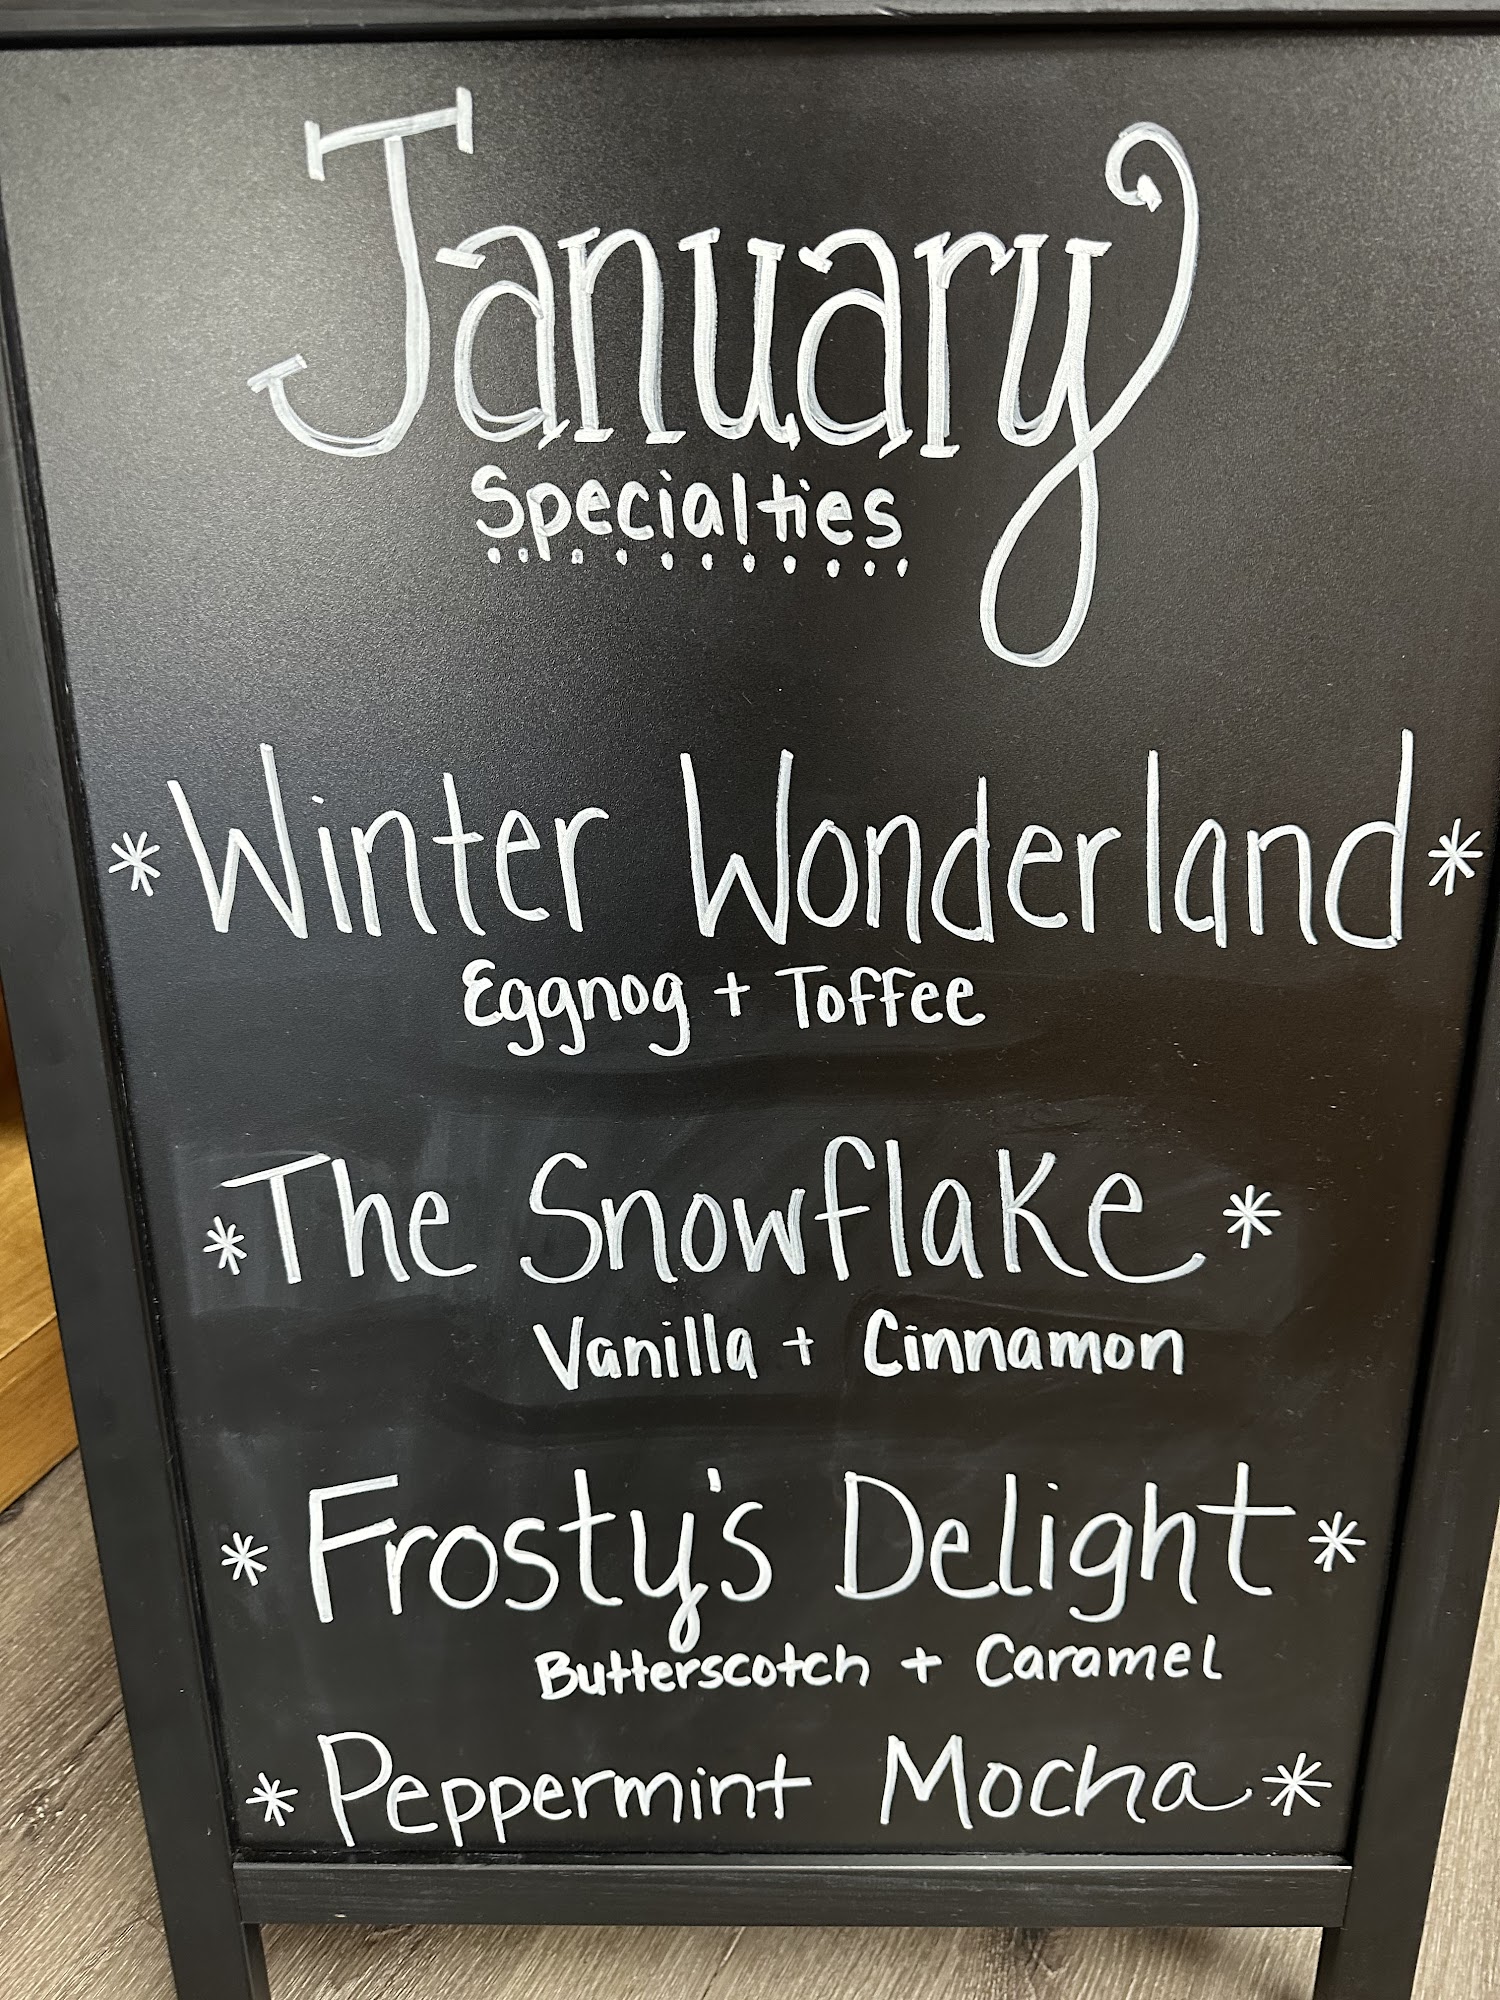 January
Specialties
* Winter Wonderland *
Eggnog + Toffee
* The Snowflake *
Vanilla + Cinnamon
* Frosty's Delight *
Butterscotch + Caramel
* Peppermint Mocha *